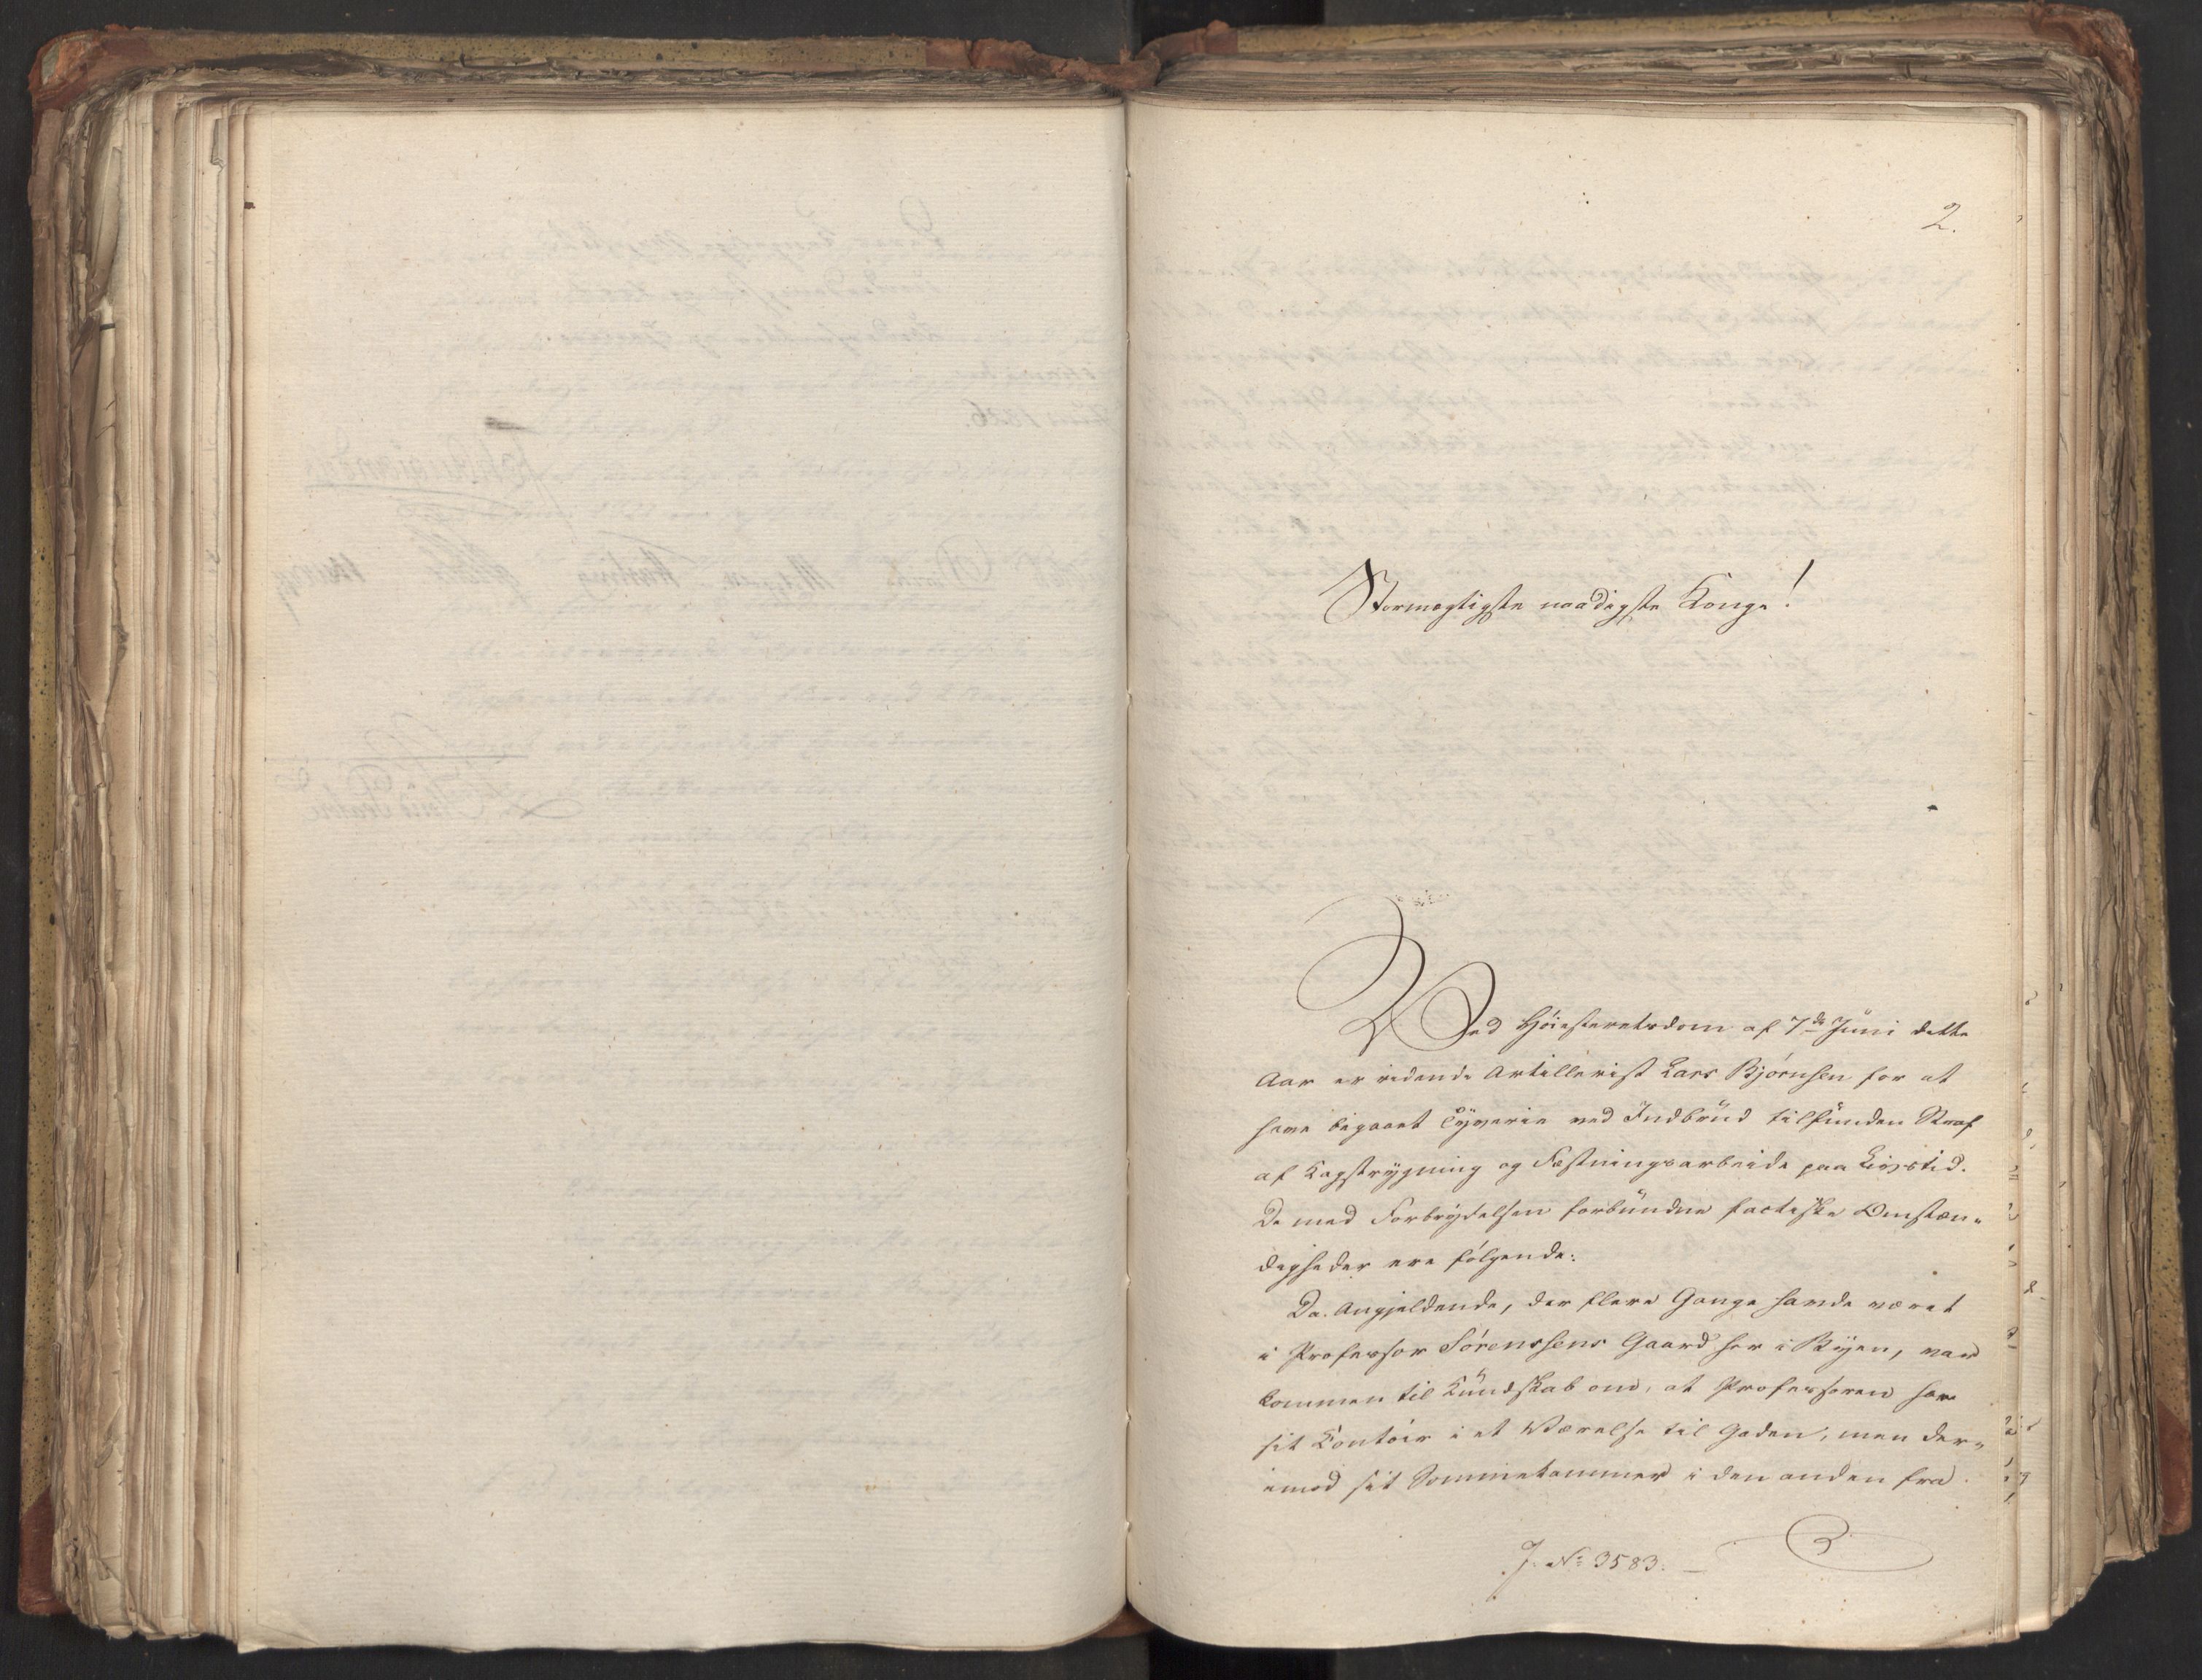 2.
Stormægtigste naadigste Konge!
Ved Høiesteretsdom af 7de Juni dette
Aar er ridende Artillerist Lars Bjørnsen for at
have begaaet Tyverie ved Indbrud tilfunden Straf
af Kagstrygning og Fæstningsarbeide paa Livstid.
De med Forbrydelsen forbundne factiske Omstæn-
digheder ere følgende:
Da Angjeldende, der flere Gange havde været
i Professor Sørenssens Gaard her i Byen, var
kommen til Kundskab om, at Professoren har
sit Contoir i et Værelse til Gaden, men der-
imod sit Sovekammer i den anden fra
J. No 3583.